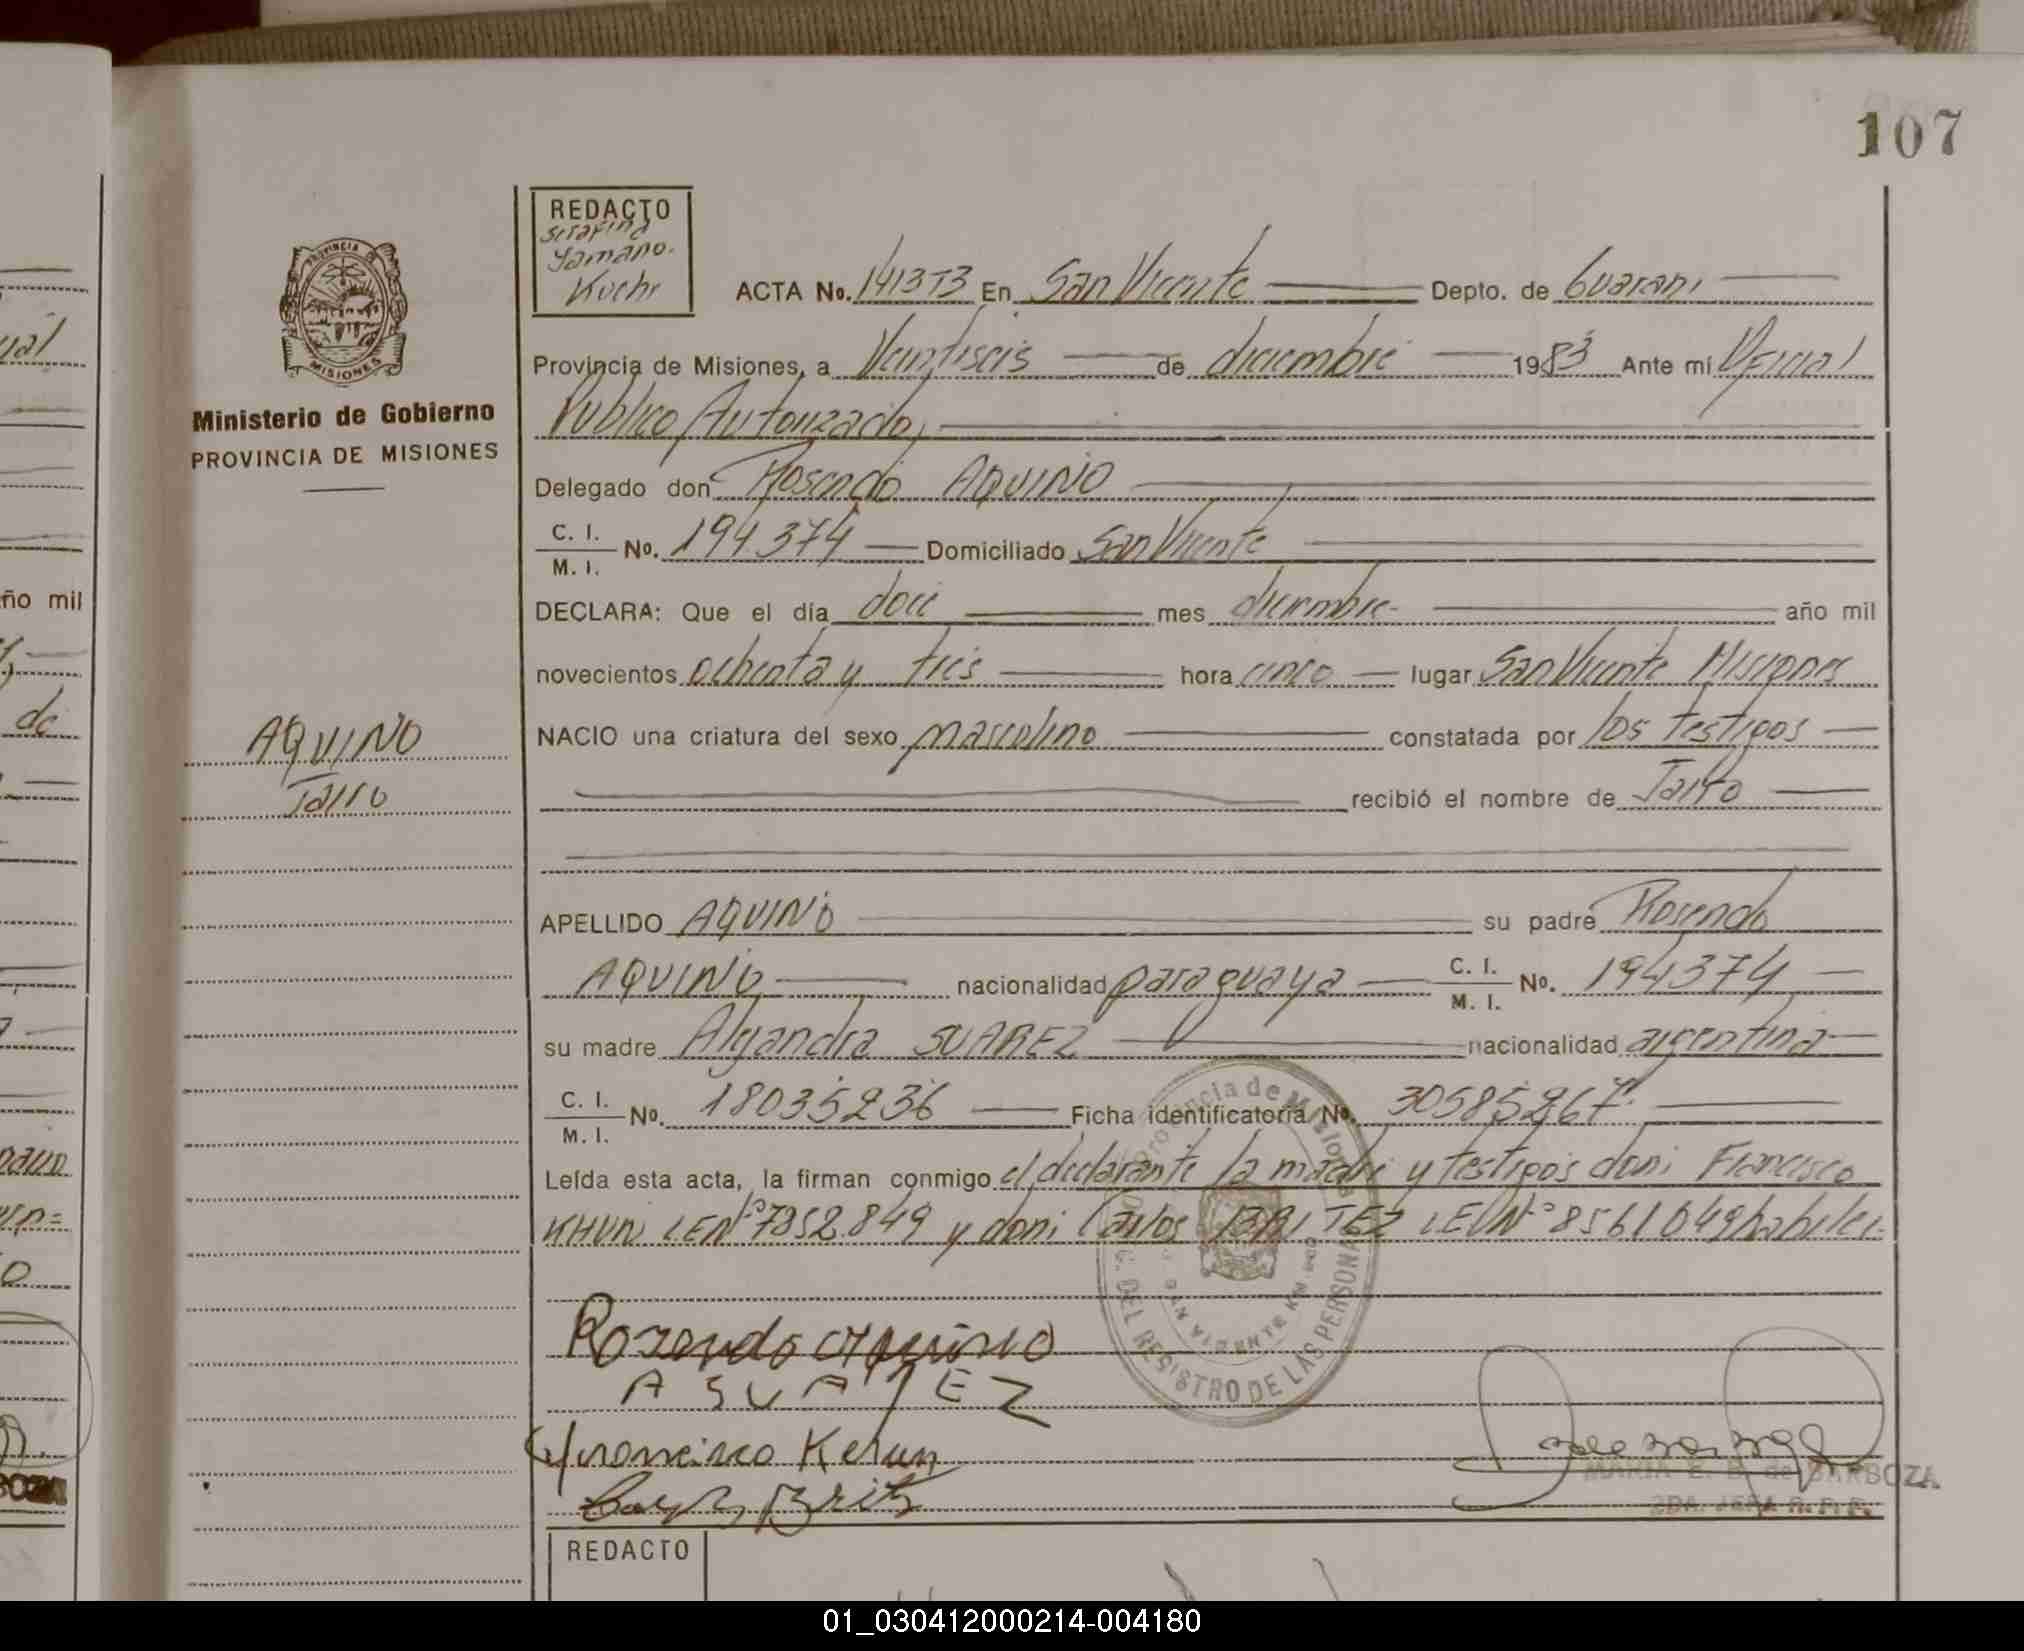 107
REDACTO
Serafina
Yamano.
Kuehr
ACTA No. 1413T3 En San Vicente Depto. de Guarani
PROVINCIA DE
MISIONES
Ministerio de Gobierno
PROVINCIA DE MISIONES
Provincia de Misiones, a Veintiseis de diciembre 1983 Ante mí Oficial
Publico Autorizado,
Delegado don Rosendo AQUINO
C. I.
M. I. No. 194.374 Domiciliado San Vicente
DECLARA: Que el día doce mes diciembre año mil
novecientos ochenta y tres hora cinco lugar San Vicente Misiones
AQUINO
Jairo
NACIO una criatura del sexo masculino constatada por los testigos
recibió el nombre de Jairo
APELLIDO AQUINO su padre Rosendo
AQUINO nacionalidad paraguaya C. I.
M. I. No. 194374
su madre Alejandra SUAREZ nacionalidad argentina
C. I.
M. I. No. 18035236 Ficha identificatoria No. 30585267
Leída esta acta, la firman conmigo el declarante la madre y testigos don: Francisco
KHUN LEN° 7852.849 y don: Carlos BRITEZ LEN° 8561049 habiles.
Provincia de Misiones
DEL REGISTRO DE LAS PERSONAS
SAN VICENTE KM.
Rozendo aquino
A SUAREZ
Francisco Kehun
MARIA E. B. de BARBOZA
2DA. JEFA R. P. P.
REDACTO
ño mil
de
01_030412000214-004180